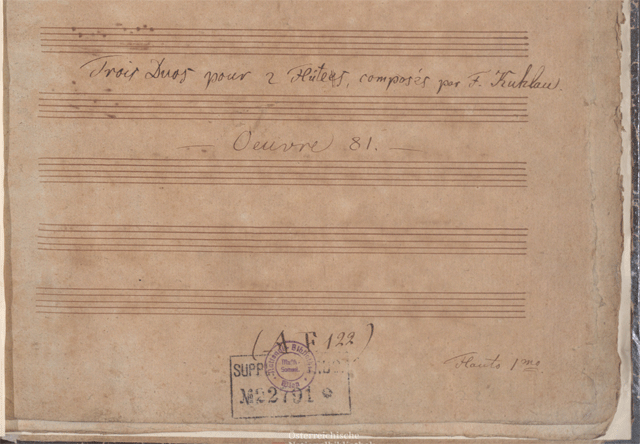 Trois Duos pour 2 Flûtes, composés par F. Kuhlau.
— Oeuvre 81. —
(A F 122)
SUPP
M22791 *
Flauto 1mo
Österreichische